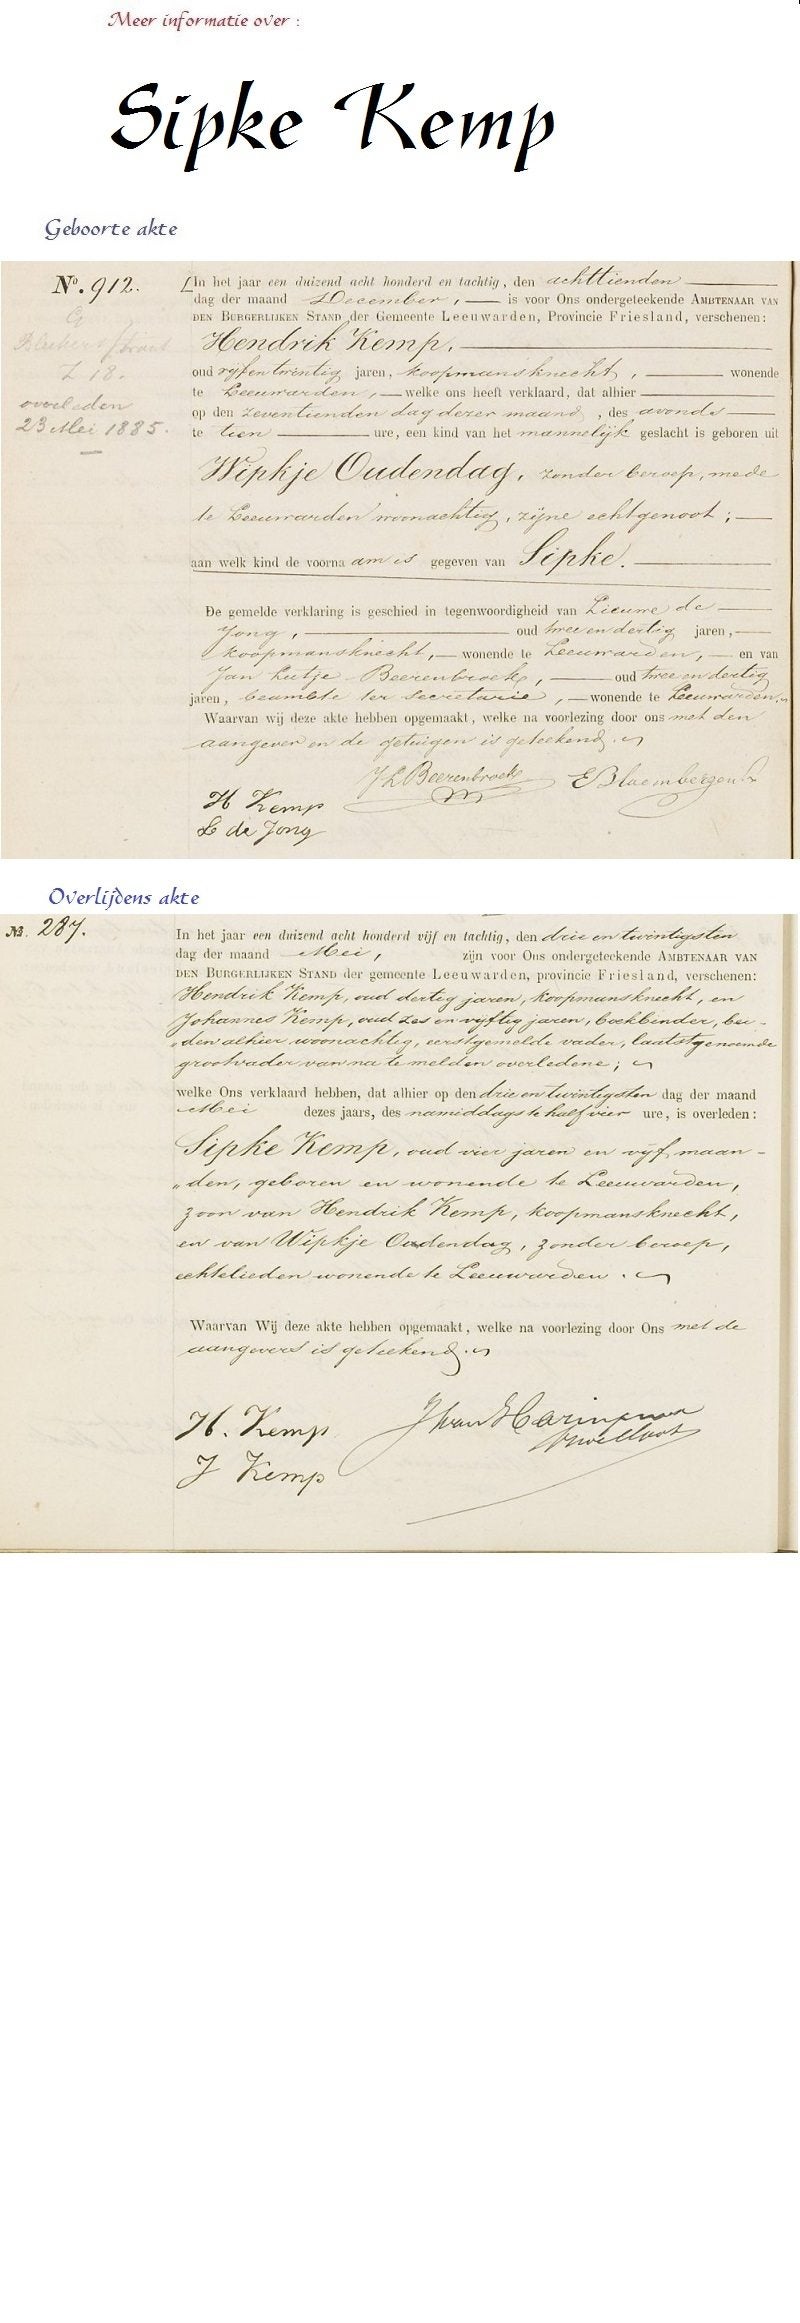 Meer informatie over :
Sipke Kemp
Geboorte akte
No. 912.
overleden
23 Mei 1885.
In het jaar een duizend acht honderd en tachtig, den achttienden
dag der maand December, is voor Ons ondergeteekende AMBTENAAR VAN
DEN BURGERLIJKEN STAND der Gemeente Leeuwarden, Provincie Friesland, verschenen:
Hendrik Kemp,
oud vyfentwintig jaren, koopmansknecht, wonende
te Leeuwarden, welke ons heeft verklaard, dat alhier
op den zeventienden dag dezer maand, des avonds
te tien ure, een kind van het mannelijk geslacht is geboren uit
Wipkje Oudendag, zonder beroep, mede
te Leeuwarden woonachtig, zijne echtgenoot;
aan welk kind de voornaam is gegeven van Sipke.
De gemelde verklaring is geschied in tegenwoordigheid van Lieuwe de
Jong, oud twee en dertig jaren,
koopmansknecht, wonende te Leeuwarden, en van
Jan Lutje Beerenbroek, oud twee en dertig
jaren, beambte ter secretarie, wonende te Leeuwarden.
Waarvan wij deze akte hebben opgemaakt, welke na voorlezing door ons met den
aangever en de getuigen is geteekend.
J L Beerenbroek E Bloembergen
H Kemp
L de Jong
Overlijdens akte
No. 287.
In het jaar een duizend acht honderd vijf en tachtig, den drie en twintigsten
dag der maand Mei, zijn voor Ons ondergeteekende AMBTENAAR VAN
DEN BURGERLIJKEN STAND der gemeente Leeuwarden, provincie Friesland, verschenen:
Hendrik Kemp, oud dertig jaren, koopmansknecht, en
Johannes Kemp, oud zes en vyftig jaren, boekbinder, bei-
„den alhier woonachtig, eerstgemelde vader, laatstgenoemde
grootvader van na te melden overledene;
welke Ons verklaard hebben, dat alhier op den drie en twintigsten dag der maand
Mei dezes jaars, des namiddags te half vier ure, is overleden:
Sipke Kemp, oud vier jaren en vyf maan-
„den, geboren en wonende te Leeuwarden,
zoon van Hendrik Kemp, koopmansknecht,
en van Wipkje Oudendag, zonder beroep,
echtelieden wonende te Leeuwarden.
Waarvan Wij deze akte hebben opgemaakt, welke na voorlezing door Ons met de
aangevers is geteekend.
H. Kemp
J Kemp